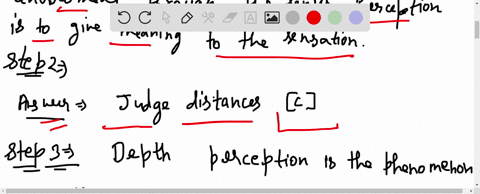 perception
is to give meaning to the sensation.
Step2⇒
Answer ⇒ Judge distances [c]
Step 3⇒ Depth perception is the phenomenon